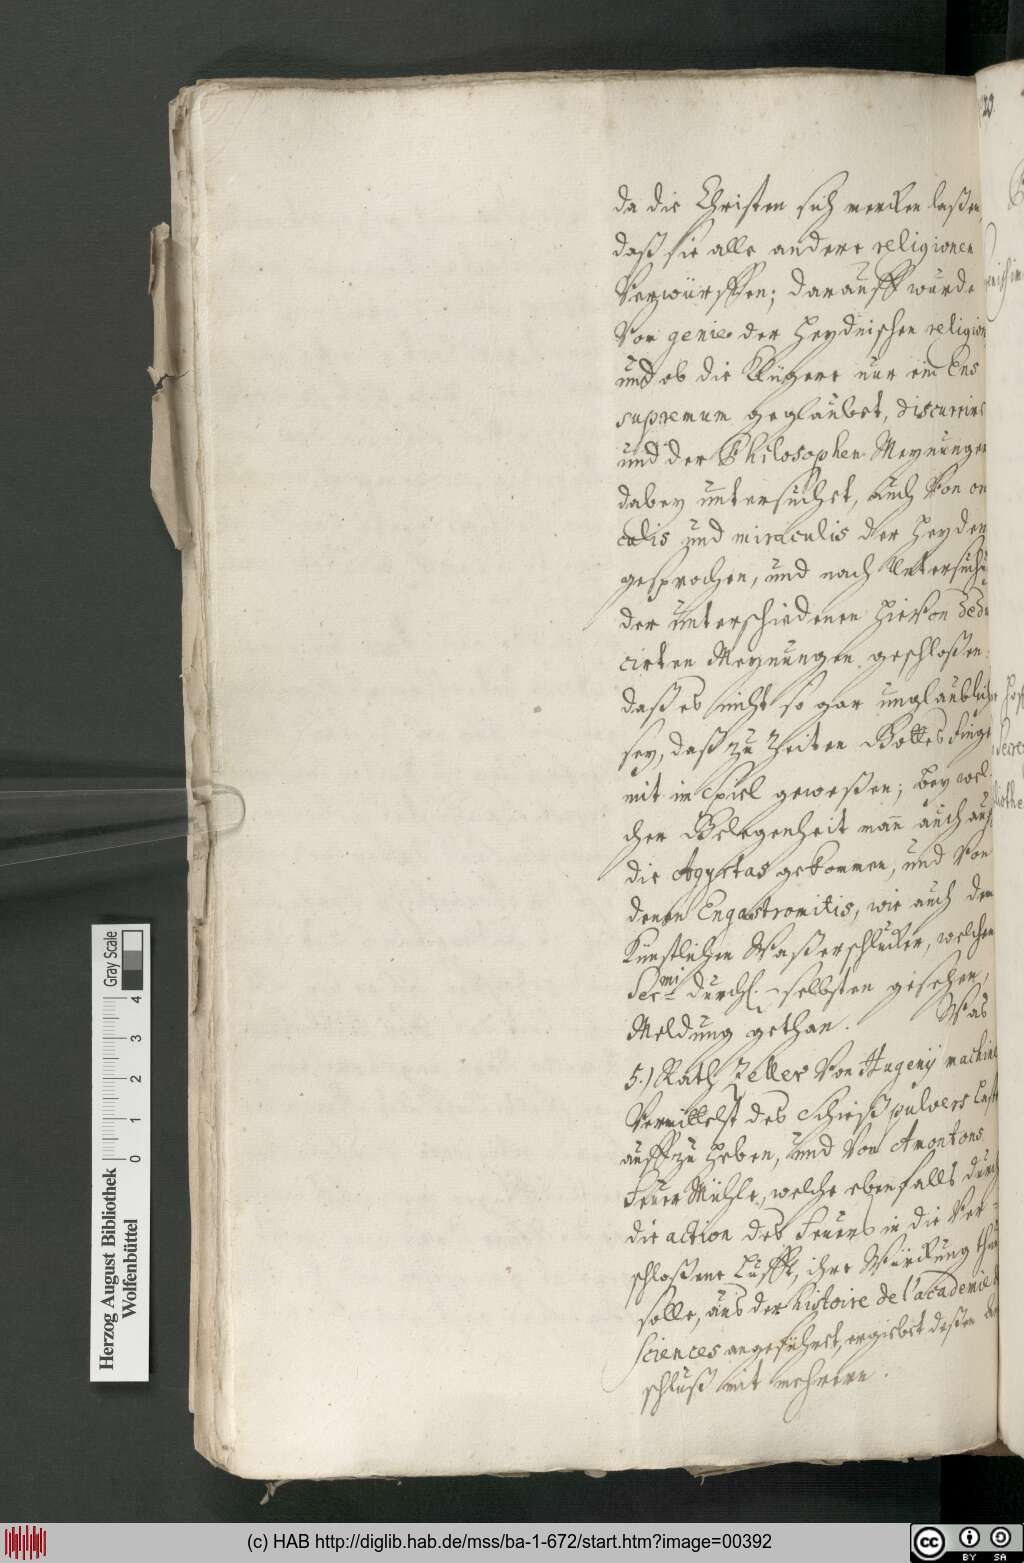 da die Christen sich mercken laßen
daß sie alle andere religionen
Verwürffen; darauff wurde
Von genie der Heydnischen religion
und ob die Klügere nur ein Ens
supremum geglaubet, discurriret
und der Philosophen Meynungen
dabey untersuchet, auch Von
culis und miraculis der Heyden
gesprochen, und nach Untersuchu
der unterschiedenen hieVon dedu
cirten Meynungen geschloßen
daß es nicht so gar unglaublich
sey, daß zu Zeiten Gottes Finge
mit im Spiel geweßen; bey wel
cher Gelegenheit mann auch auf
die Agyrtas gekommen, und Von
denen Engastromitis, wie auch dem
Künstlichen Waßerschlucker, welchen
Ser.mi Durchl. selbsten gesehen,
Meldung gethan. Was
5.) Rath Zeller Von Hugenij machine
Vermittelst des Schieß pulvers Last
auff zu heben, und Von Amontons
Feuer Mühle, welche ebenfalls durch
die action des Feuers in die Ver-
schloßene Lufft, ihre Würckung thun
solle, aus der histoire de l'academie d
sciences angeführet, ergiebet deßen
schluß mit mehrern.
20
Herzog August Bibliothek
Wolfenbüttel
Gray Scale
0 1 2 3 4
(c) HAB http://diglib.hab.de/mss/ba-1-672/start.htm?image=00392
cc BY SA